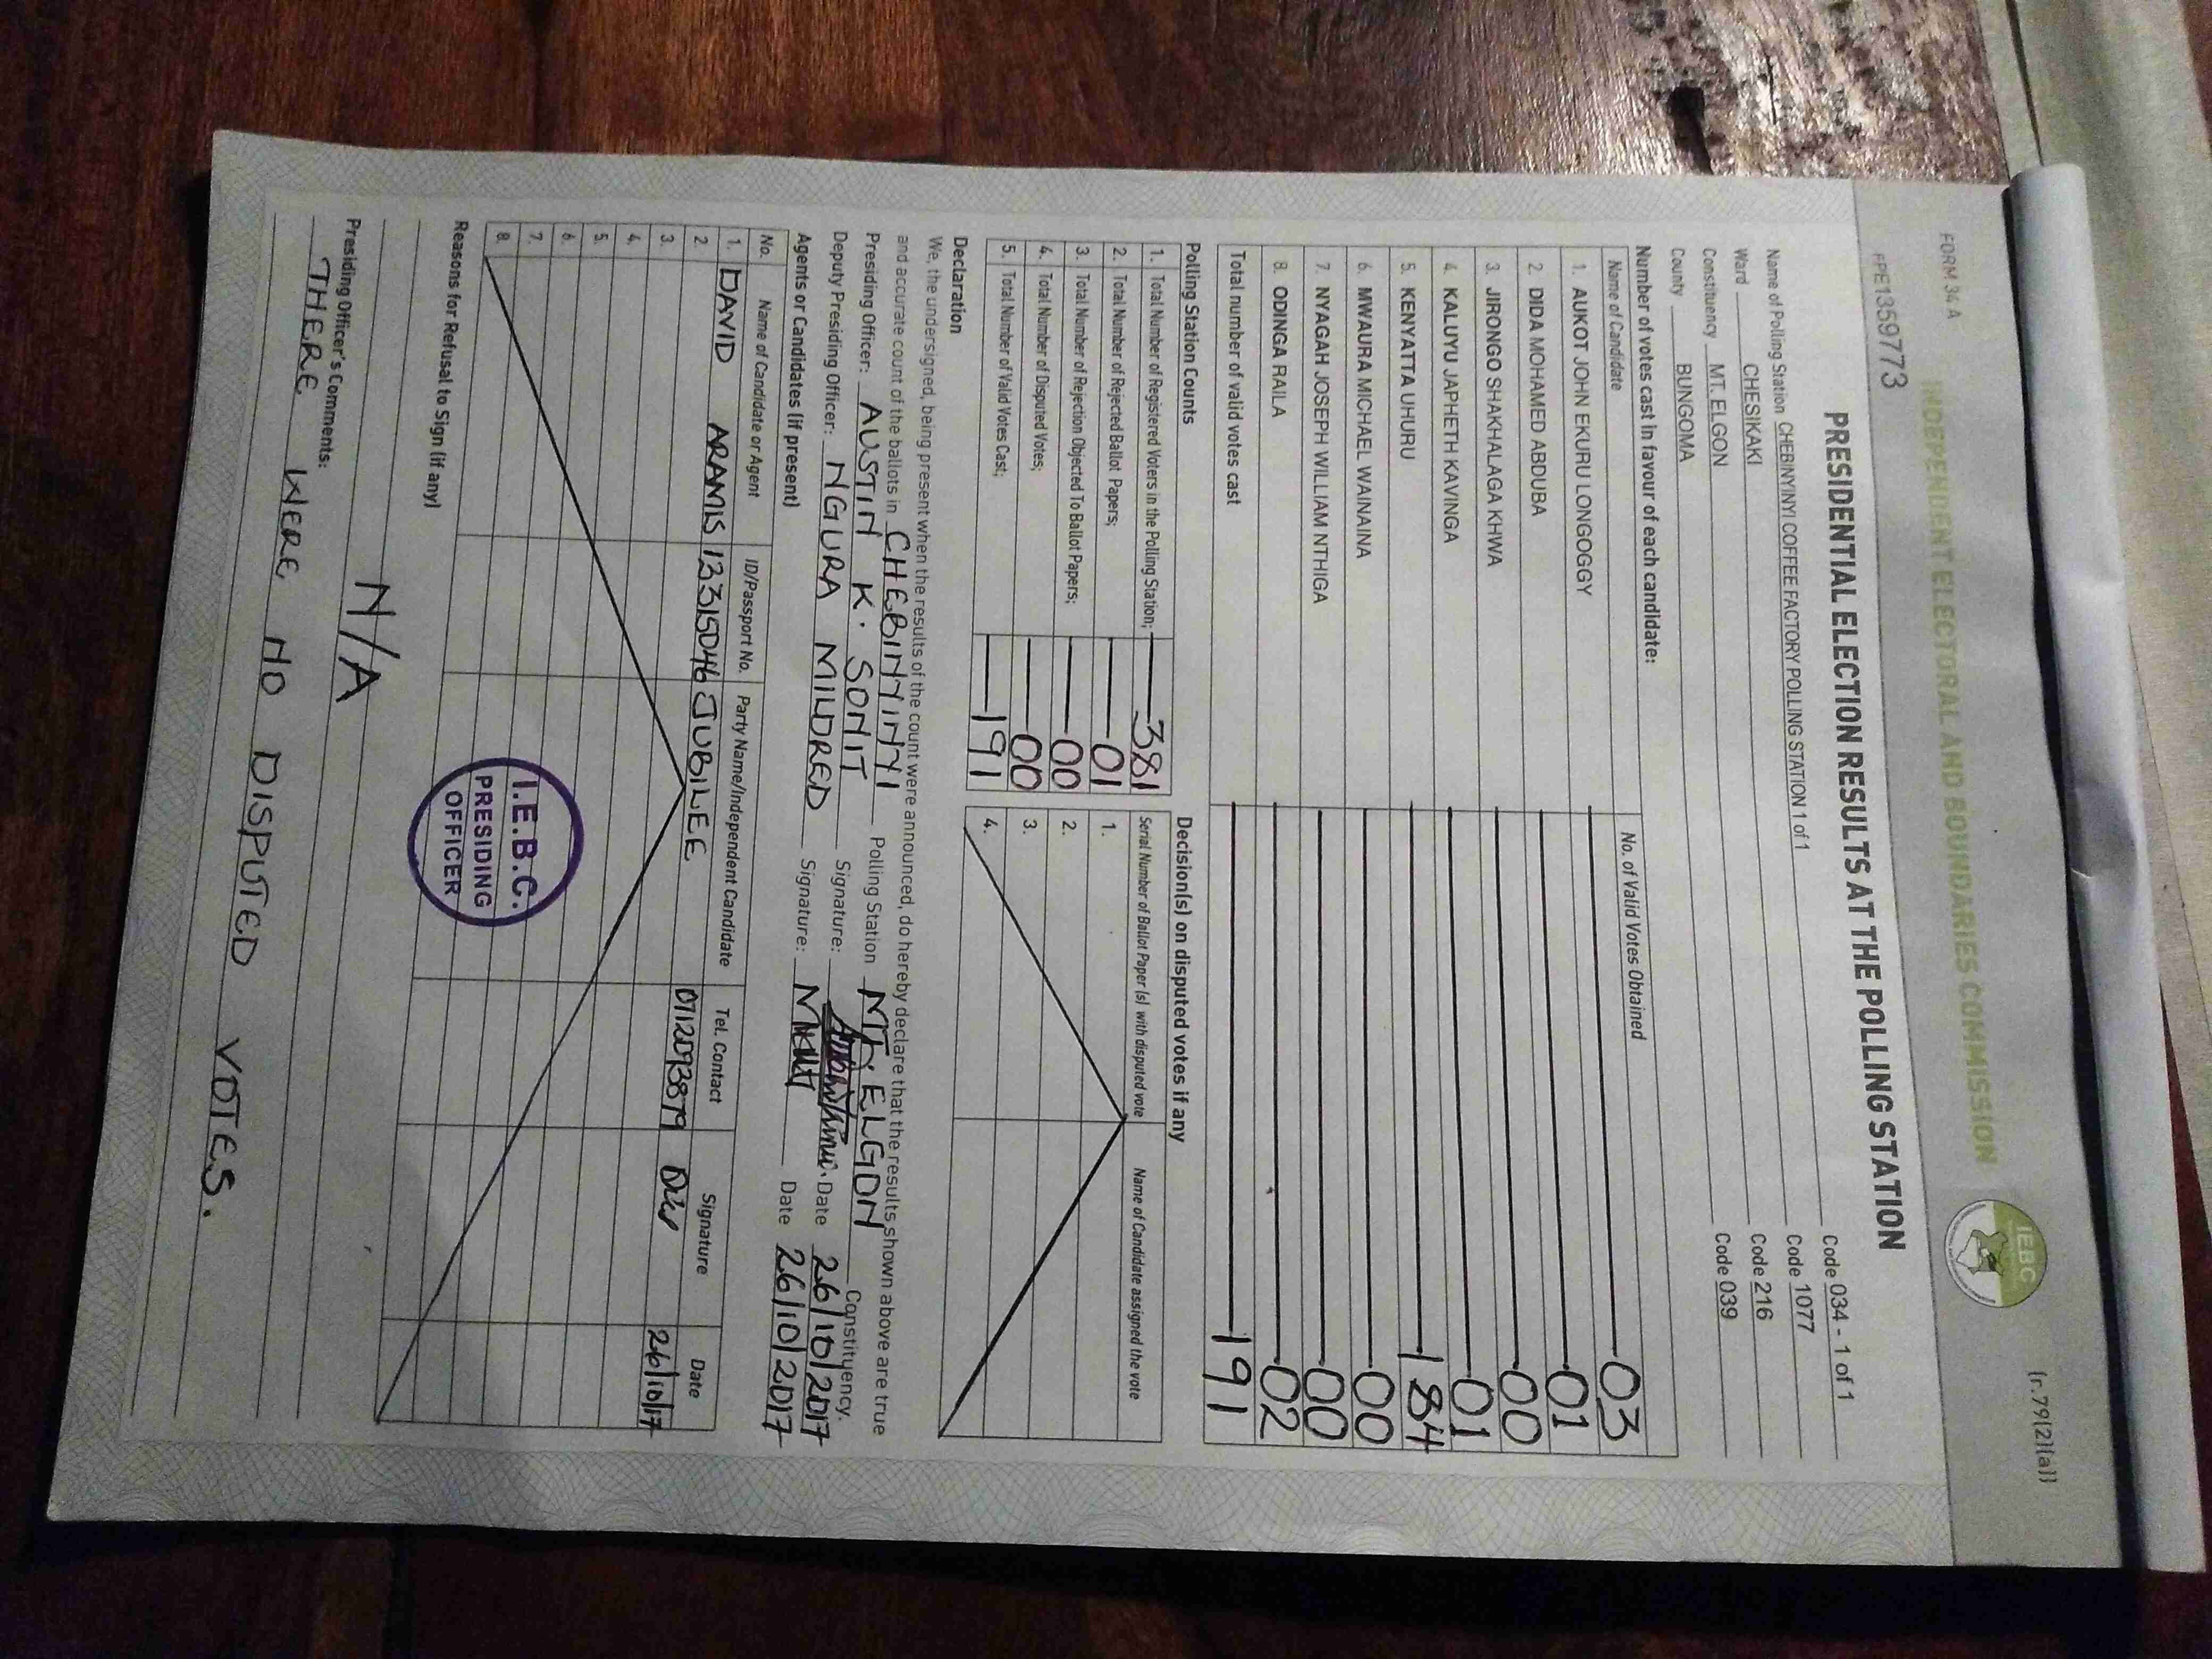 FORM 34 A
(r.79(2)(a))
INDEPENDENT ELECTORAL AND BOUNDARIES COMMISSION
IEBC
PPE1359773
PRESIDENTIAL ELECTION RESULTS AT THE POLLING STATION
Name of Polling Station CHEBINYINYI COFFEE FACTORY POLLING STATION 1 of 1 Code 034 - 1 of 1
Ward CHESIKAKI Code 1077
Constituency MT. ELGON Code 216
County BUNGOMA Code 039
Number of votes cast in favour of each candidate:
Name of Candidate No. of Valid Votes Obtained
1. AUKOT JOHN EKURU LONGOGGY 03
2. DIDA MOHAMED ABDUBA 01
3. JIRONGO SHAKHALAGA KHWA 00
4. KALUYU JAPHETH KAVINGA 01
5. KENYATTA UHURU 184
6. MWAURA MICHAEL WAINAINA 00
7. NYAGAH JOSEPH WILLIAM NTHIGA 00
8. ODINGA RAILA 02
Total number of valid votes cast 191
Polling Station Counts
1. Total Number of Registered Voters in the Polling Station; 381
2. Total Number of Rejected Ballot Papers; 01
3 Total Number of Rejection Objected To Ballot Papers; 00
4. Total Number of Disputed Votes; 00
5. Total Number of Valid Votes Cast; 191
Decision(s) on disputed votes if any
Serial Number of Ballot Paper (s) with disputed vote Name of Candidate assigned the vote
1.
2.
3.
4.
Declaration
We, the undersigned, being present when the results of the count were announced, do hereby declare that the results shown above are true
and accurate count of the ballots in CHEBINYINYI Polling Station MT. ELGON Constituency.
Presiding Officer: AUSTIN K. SONIT Signature: Date 26/10/2017
Deputy Presiding Officer: NGURA MILDRED Signature: Date 26/10/2017
Agents or Candidates (if present)
No. Name of Candidate or Agent ID/Passport No. Party Name/Independent Candidate Tel. Contact Signature Date
1. DAVID ARAMIS 13315046 JUBILEE 0712093879 26/10/17
2.
3.
4.
5.
6.
7.
8.
I.E.B.C.
PRESIDING
OFFICER
Reasons for Refusal to Sign (if any)
N/A
Presiding Officer's Comments:
THERE WERE NO DISPUTED VOTES.